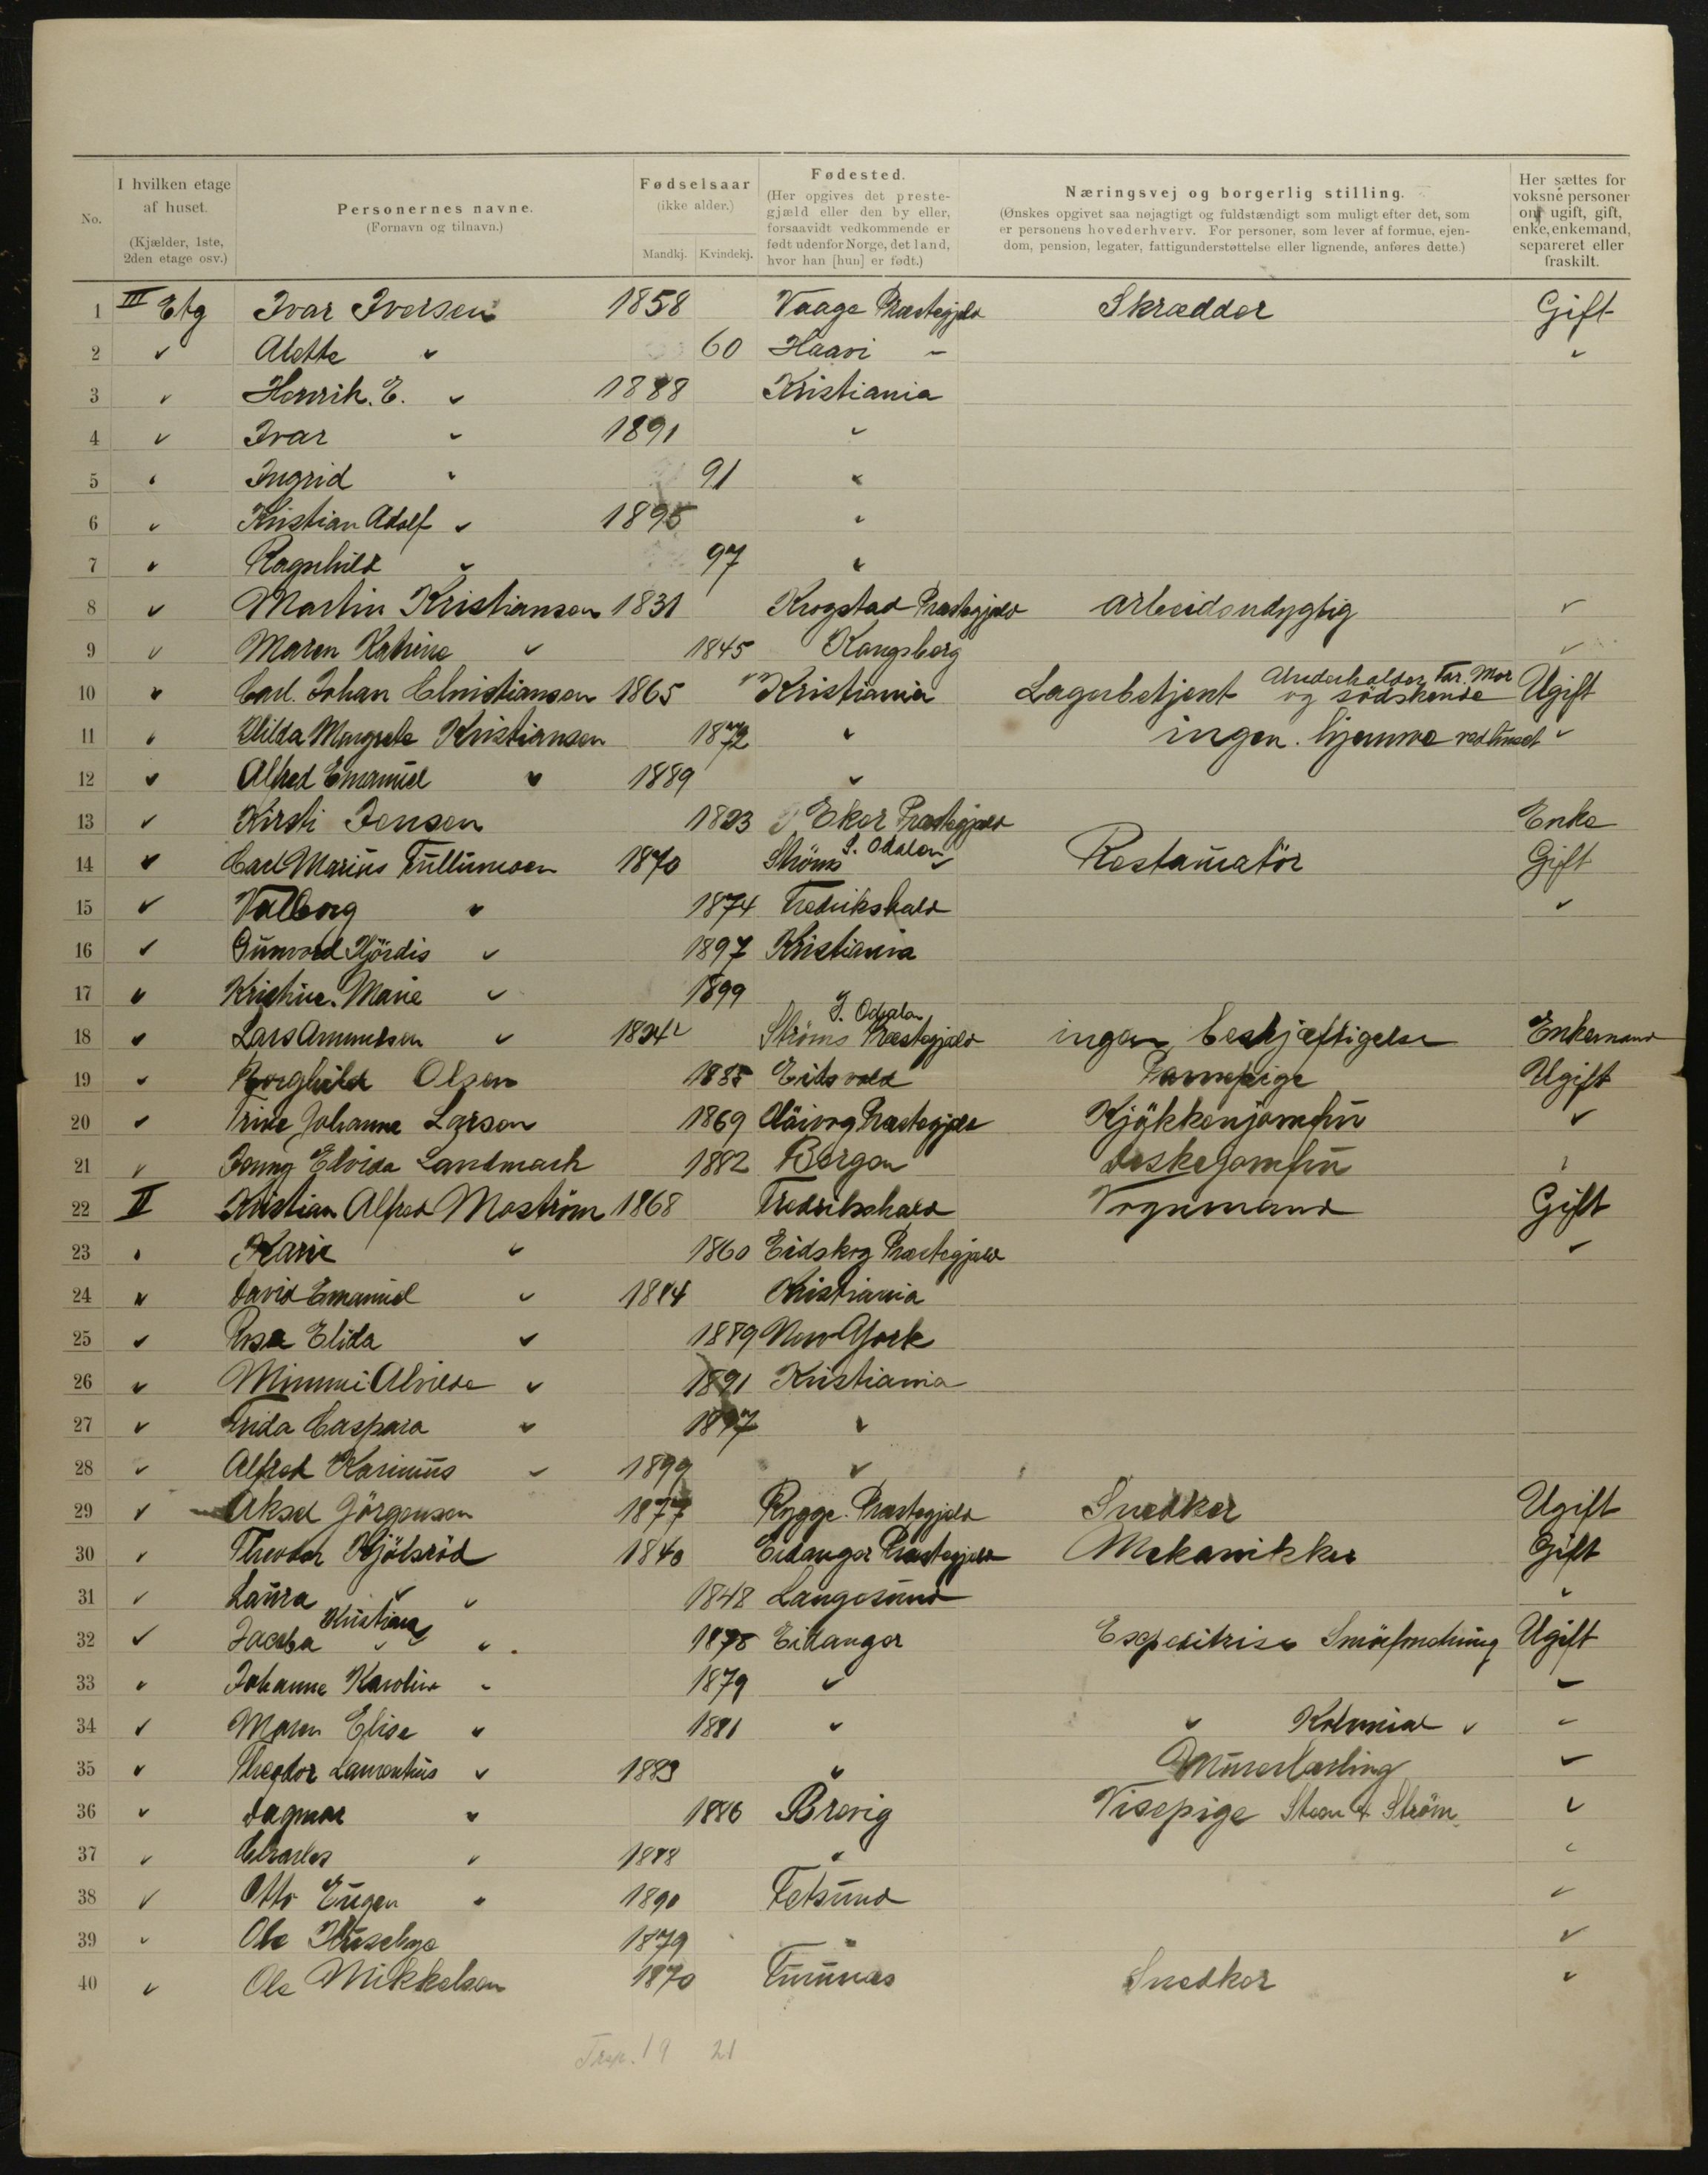 No.
I hvilken etage af huset. (Kjælder, 1ste, 2den etage osv.)
Personernes navne. (Fornavn og tilnavn.)
Fødselsaar (ikke alder.) Mandkj. Kvindekj.
Fødested. (Her opgives det prestegjæld eller den by eller, forsaavidt vedkommende er født udenfor Norge, det land, hvor han [hun] er født.)
Næringsvej og borgerlig stilling. (Ønskes opgivet saa nøjagtigt og fuldstændigt som muligt efter det, som er personens hovederhverv. For personer, som lever af formue, ejendom, pension, legater, fattigunderstøttelse eller lignende, anføres dette.)
Her sættes for voksne personer om ugift, gift, enke, enkemand, separeret eller fraskilt.
1 III Etg Ivar Iversen 1858 Vaage Præstegjeld Skrædder Gift
2 " Alette " 60 Haavi " "
3 " Henrik. E. " 1888 Kristiania
4 " Ivar " 1891 "
5 " Ingrid " 91 "
6 " Kristian Adolf " 1895 "
7 " Ragnhild " 97 "
8 " Martin Kristiansen 1831 Krogstad Præstegjeld arbeidsudygtig "
9 " Maren Katrine " 1845 Kongsberg "
10 " Carl. Johan Christiansen 1865 Kristiania Lagerbetjent Underholder Far. Mor og södskende Ugift
11 " Hilda Margrete Kristiansen 1872 " ingen. hjemme ved huset "
12 " Alfred Emanuel " 1889 "
13 " Kirsti Jensen 1823 Eker Præstegjeld Enke
14 " Carl Marius Tullumoen 1870 Ströms S. Odalen " Restauratör Gift
15 " Valborg " 1874 Fredrikshald "
16 " Gunvord Hjördis " 1897 Kristiania
17 " Kristine. Marie " 1899
18 " Lars Amundsen " 1824 Ströms S. Odalen Præstegjeld ingen beskjæftigelse Enkemand
19 " Borghild Olsen 1885 Eidsvold Ugift
20 " Trine Johanne Larsen 1869 Præstegjeld Kjökkenjomfru "
21 " Jenny Elvida Landmark 1882 Bergen Diskejomfru "
22 II Kristian Alfred Moström 1868 Fredrikshald Vognmand Gift
23 " Karie " 1860 Eidskog Præstegjeld "
24 " David Emanuel " 1884 Kristiania
25 " Rosa Elida " 1889 New York
26 " Mimmi Alvilde " 1891 Kristiania
27 " Frida Caspara " 1897 "
28 " Alfred Karinius " 1899 "
29 " Aksel Görgensen 1877 Rygge. Præstegjeld Snedker Ugift
30 " Theodor Kjölsröd 1840 Eidanger Præstegjeld Mekanikker Gift
31 " Laura " " 1848 Langesund "
32 " Jacoba Kristiane " 1878 Eidanger Expeditrise Smörforretning Ugift
33 " Johanne Karoline " 1879 " "
34 " Maren Elise " 1881 " " Kolonial " "
35 " Theodor Laurentius " 1883 " Murerlærling "
36 " Dagmar " 1886 Brevig Visepige Steen & Ström. "
37 " Charles " 1888 " "
38 " Otto Eugen " 1890 Fetsund "
39 " Ole Huseby 1879 " "
40 " Ole Mikkelsen 1870 Furunes Snedker "
19 21